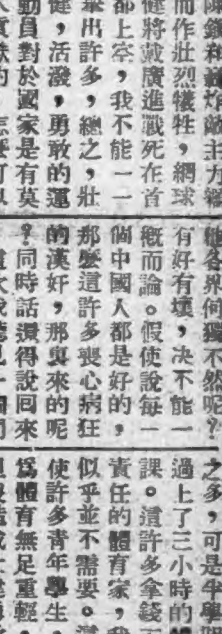 陳鎮和轟炸敵主力艦
而作壯烈犧牲,網球
健將戴廣進戰死在首
都上空,我不能一一
舉出許多,總之,壯
健,活潑,勇敢的運
動員對於國家是有莫
大貢獻的 怎麼可以
他各界何獨不然呢?
有好有壞,决不能一
概而論。假使說每一
個中國人都是好的,
那麼這許多喪心病狂
的漢奸,那裏來的呢
?同時話還得說回來
之多,可是半學
過上了三小時的
課。這許多拿錢
責任的體育家,我
似乎並不需要。
使許多青年學生,
爲體育無足重輕,